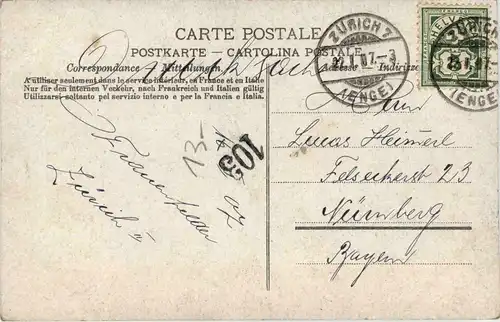 CARTE POSTALE
POSTKARTE - CARTOLINA POSTALE
Correspondance - Mitteilungen
Adresse - Indirizzo
A utiliser seulement dans le service intérieur, en France et en Italie
Nur für den internen Verkehr, nach Frankreich und Italien gültig
Utilizzarsi soltanto pel servizio interno e per la Francia e Italia
ZÜRICH 7
(ENGE)
HELVETIA
ZÜRICH
(ENGE)
103
13
07
Zürich V
Herrn
Lucas Heimerl
Felseckerstr 23
Nürnberg
Bayern